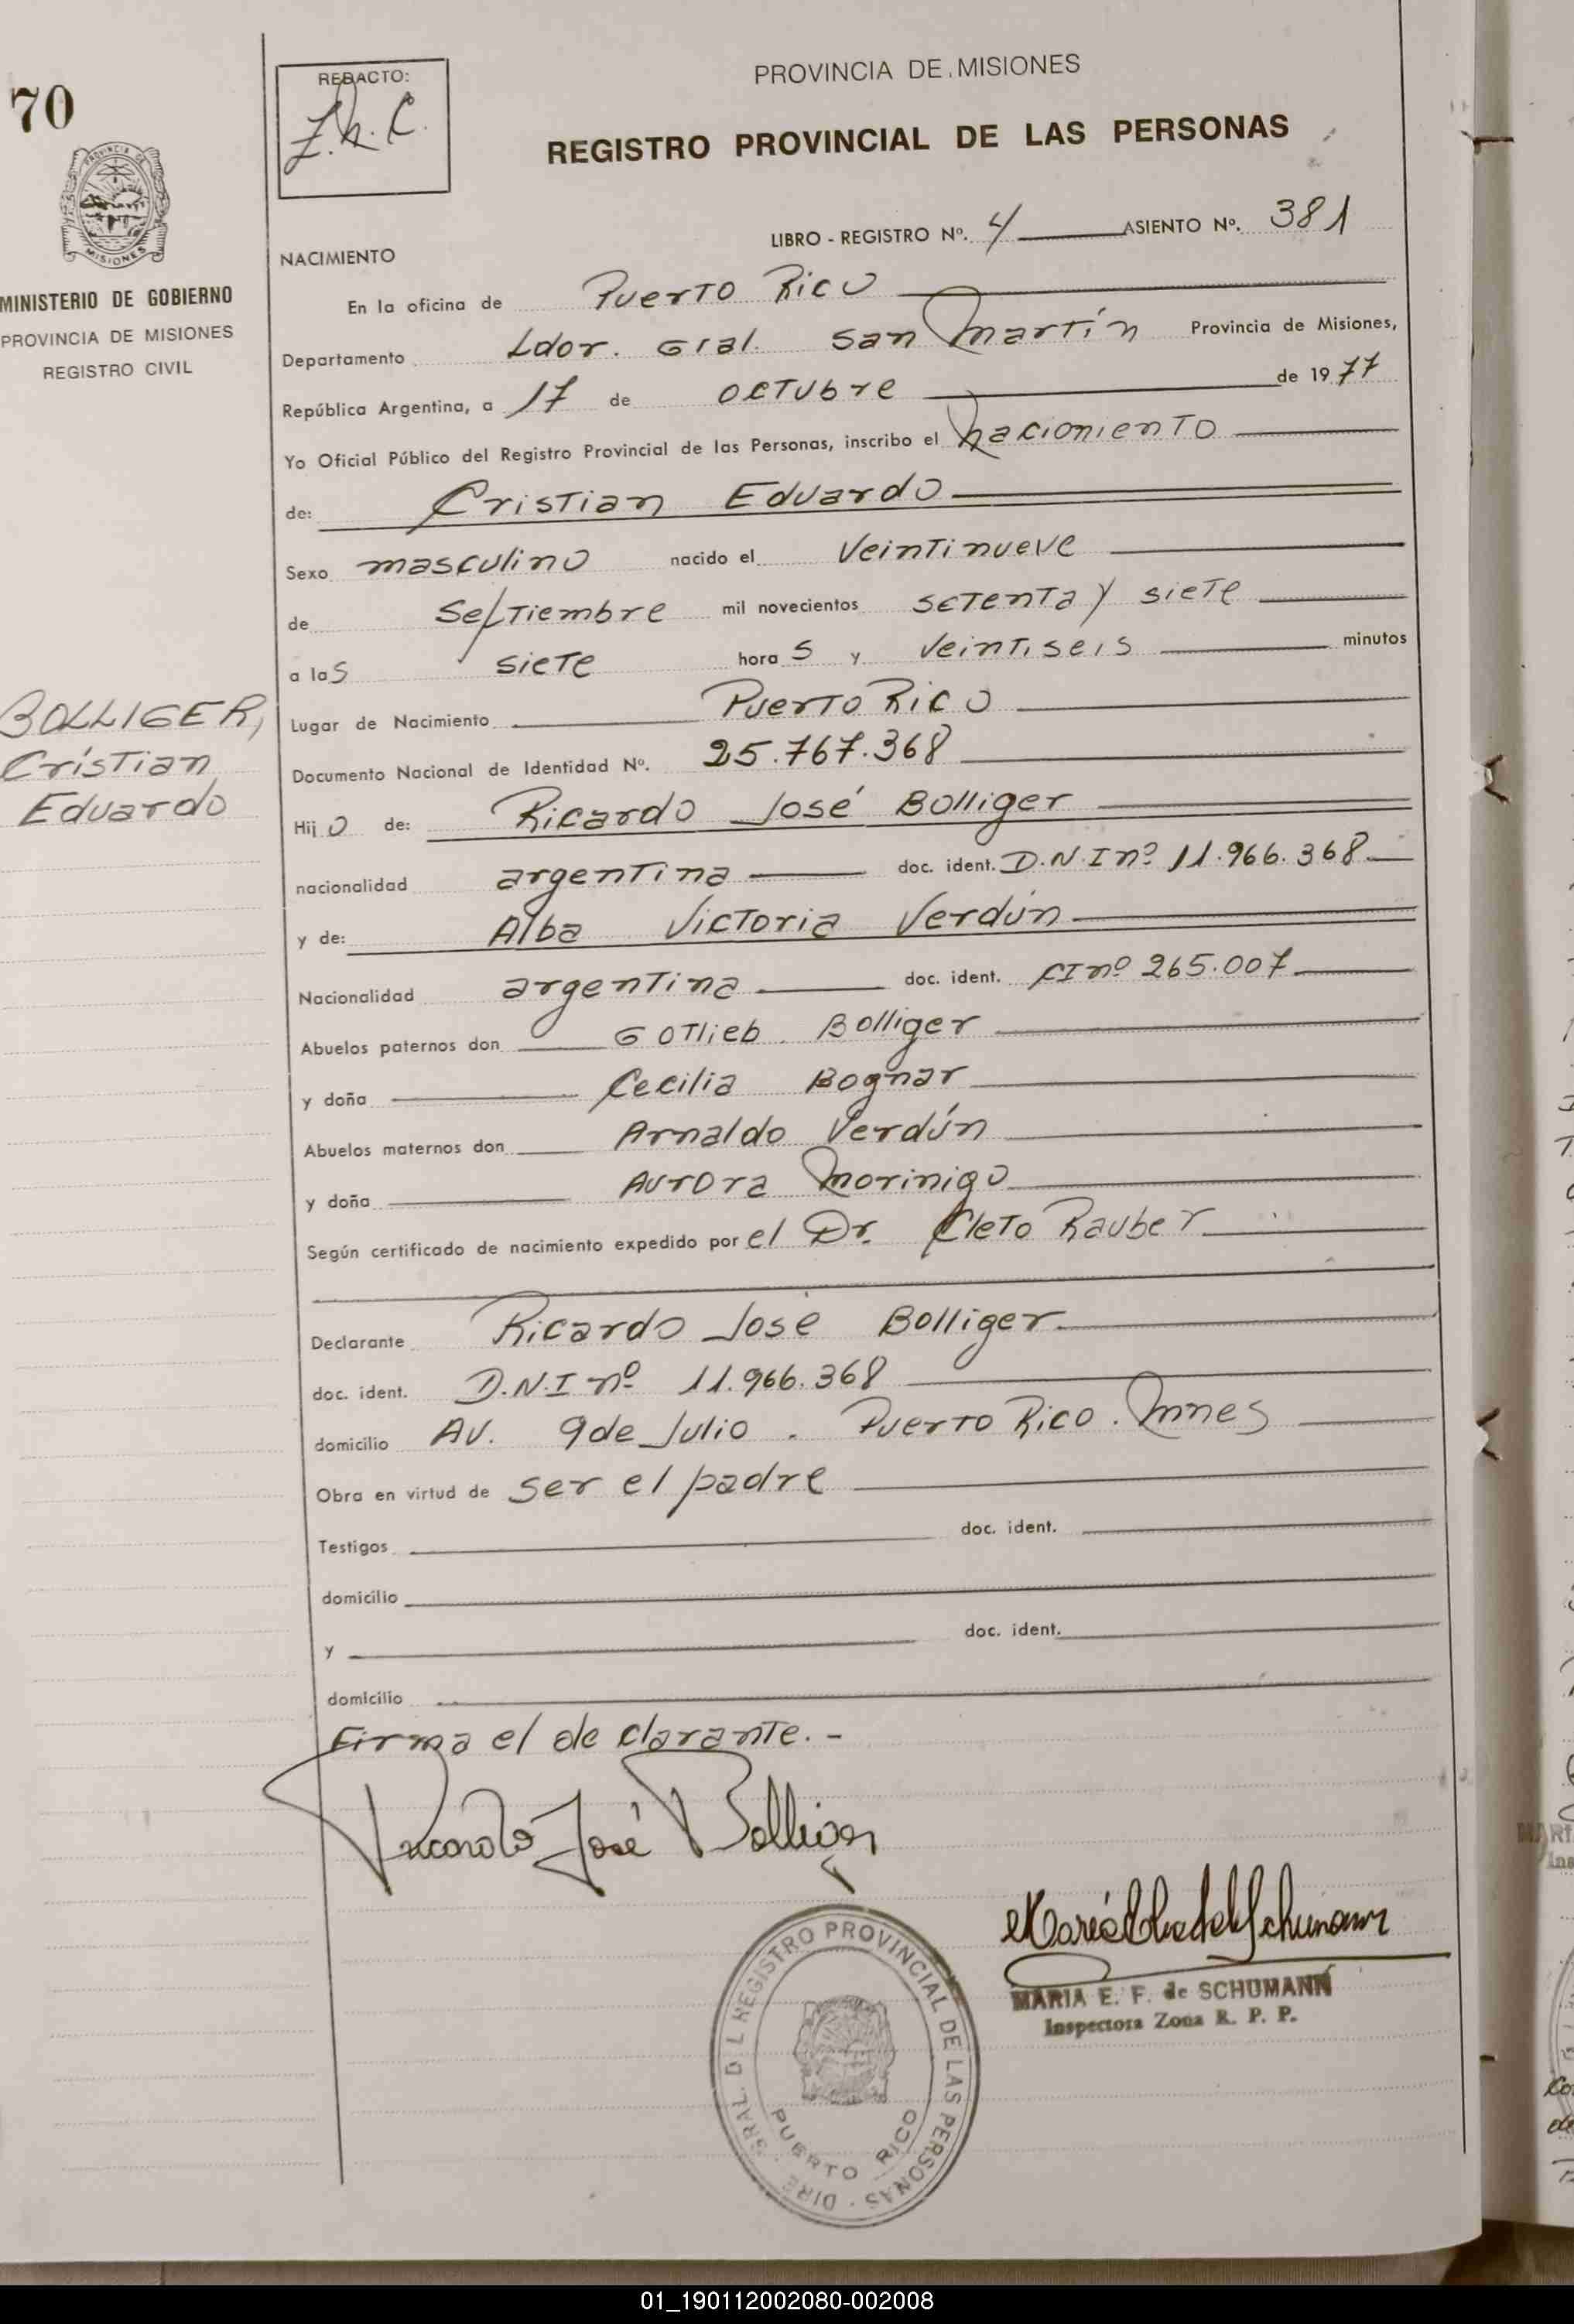 70
REDACTO:
PROVINCIA DE MISIONES
REGISTRO PROVINCIAL DE LAS PERSONAS
PROVINCIA DE
MISIONES
MINISTERIO DE GOBIERNO
PROVINCIA DE MISIONES
REGISTRO CIVIL
LIBRO - REGISTRO Nº. 4 ASIENTO Nº. 381
NACIMIENTO
En la oficina de Puerto Rico
Departamento Ldor. Gral. San Martín Provincia de Misiones,
República Argentina, a 17 de octubre de 1977
Yo Oficial Público del Registro Provincial de las Personas, inscribo el nacimiento
de: Cristian Eduardo
Sexo masculino nacido el veintinueve
de Septiembre mil novecientos setenta y siete
a las siete horas y veintiseis minutos
BOLLIGER,
Cristian
Eduardo
Lugar de Nacimiento Puerto Rico
Documento Nacional de Identidad Nº. 25.767.368
Hijo de: Ricardo José Bolliger
nacionalidad argentina doc. ident. D.N.I nº 11.966.368
y de: Alba Victoria Verdún
Nacionalidad argentina doc. ident. CI nº 265.007
Abuelos paternos don Gotlieb Bolliger
y doña Cecilia Bognar
Abuelos maternos don Arnaldo Verdún
y doña Aurora Morinigo
Según certificado de nacimiento expedido por el Dr. Cleto Rauber
Declarante Ricardo José Bolliger
doc. ident. D.N.I nº 11.966.368
domicilio Av. 9 de Julio . Puerto Rico . Mnes
Obra en virtud de ser el padre
Testigos doc. ident.
domicilio
y doc. ident.
domicilio
Firma el declarante. -
Ricardo José Bolliger
MARIA E. F. de SCHUMANN
Inspectora Zona R. P. P.
DIRE. GRAL. DEL REGISTRO PROVINCIAL DE LAS PERSONAS
PUERTO RICO
01_190112002080-002008